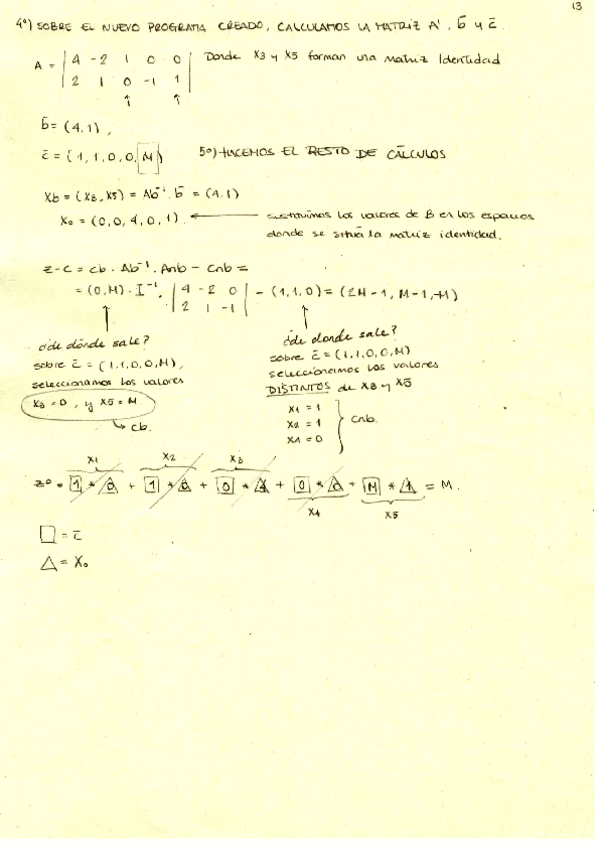 13
4º) SOBRE EL NUEVO PROGRAMA CREADO, CALCULAMOS LA MATRIZ A', b̄ y c̄.
A = | 4 -2 1 0 0 | Donde X3 y X5 forman una matriz Identidad
| 2 1 0 -1 1 |
↑ ↑
b̄ = (4,1),
c̄ = (1,1,0,0,M) 5º) HACEMOS EL RESTO DE CÁLCULOS
Xb = (X3, X5) = Ab⁻¹ · b̄ = (4,1)
X₀ = (0,0,4,0,1). ← sustituimos los valores de B en los espacios
donde se situá la matriz identidad.
Z-C = Cb · Ab⁻¹ · Anb - Cnb =
= (0,M) · I⁻¹ · | 4 -2 0 | - (1,1,0) = (2M-1, M-1, -M)
| 2 1 -1 |
¿de dónde sale?
sobre c̄ = (1,1,0,0,M),
seleccionamos los valores
X3=0, y X5=M
→ Cb.
¿de donde sale?
sobre c̄ = (1,1,0,0,M)
seleccionamos los valores
DISTINTOS de X3 y X5
X1 = 1
X2 = 1
X4 = 0
Cnb.
X1 X2 X3
Z⁰ = 1 * 0 + 1 * 0 + 0 * 4 + 0 * 0 + M * 1 = M.
X4 X5
□ = c̄
△ = X₀